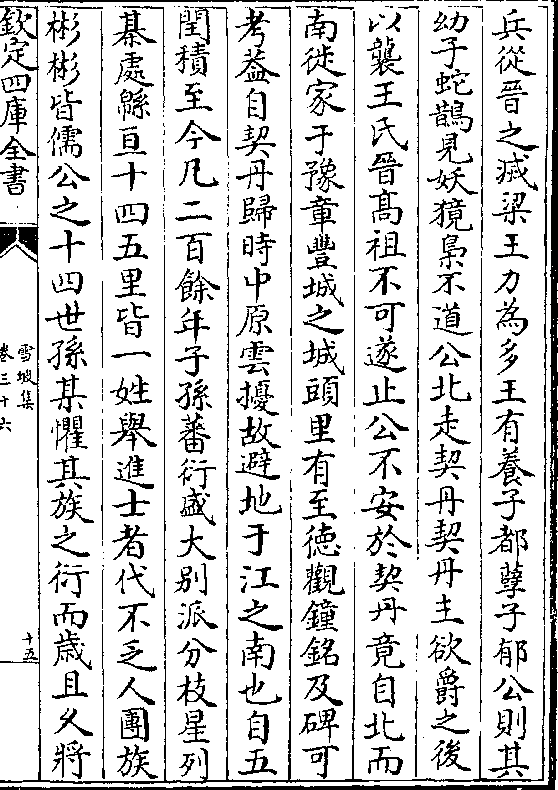 兵從晉之㓕梁王力為多王有養子都孽子郁公則其
幼子蛇鵲見妖獍梟不道公北走契丹契丹主欲爵之後
以襲王氏晉髙祖不可遂止公不安於契丹竟自北而
南徙家于豫章豐城之城頭里有至徳觀鐘銘及碑可
考葢自契丹歸時中原雲擾故避地于江之南也自五
閏積至今凡二百餘年子孫蕃衍盛大别派分枝星列
棊處緜亘十四五里皆一姓舉進士者代不乏人團族
彬彬皆儒公之十四世孫某懼其族之衍而歳且乆將
欽定四庫全書
雪坡集
卷三十六
十五